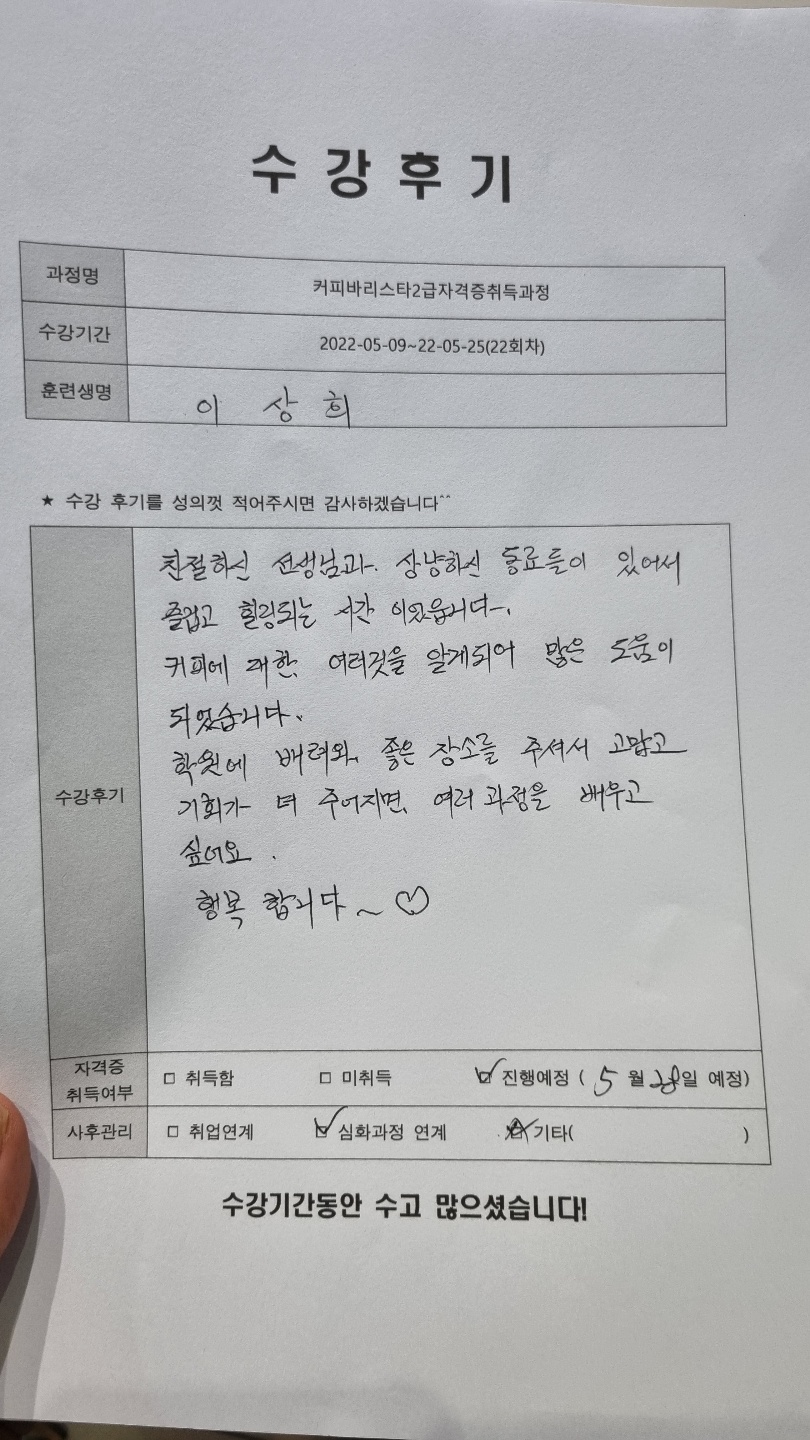 수 강 후 기
과정명 커피바리스타2급자격증취득과정
수강기간 2022-05-09~22-05-25(22회차)
훈련생명 이 상 희
★ 수강 후기를 성의껏 적어주시면 감사하겠습니다^^
친절하신 선생님과. 상냥하신 동료들이 있어서
즐겁고 힐링되는 시간 이었읍니다.
커피에 대한, 여러것을 알게되어 많은 도움이
되었습니다.
학원에 배려와, 좋은 장소를 주셔서 고맙고
수강후기
기회가 더 주어지면, 여러 과정을 배우고
싶어요.
행복 합니다~ ♡
자격증
취득여부 □ 취득함 □ 미취득 ☑ 진행예정 ( 5 월 28일 예정)
사후관리 □ 취업연계 ☑ 심화과정 연계 □ 기타( )
수강기간동안 수고 많으셨습니다!